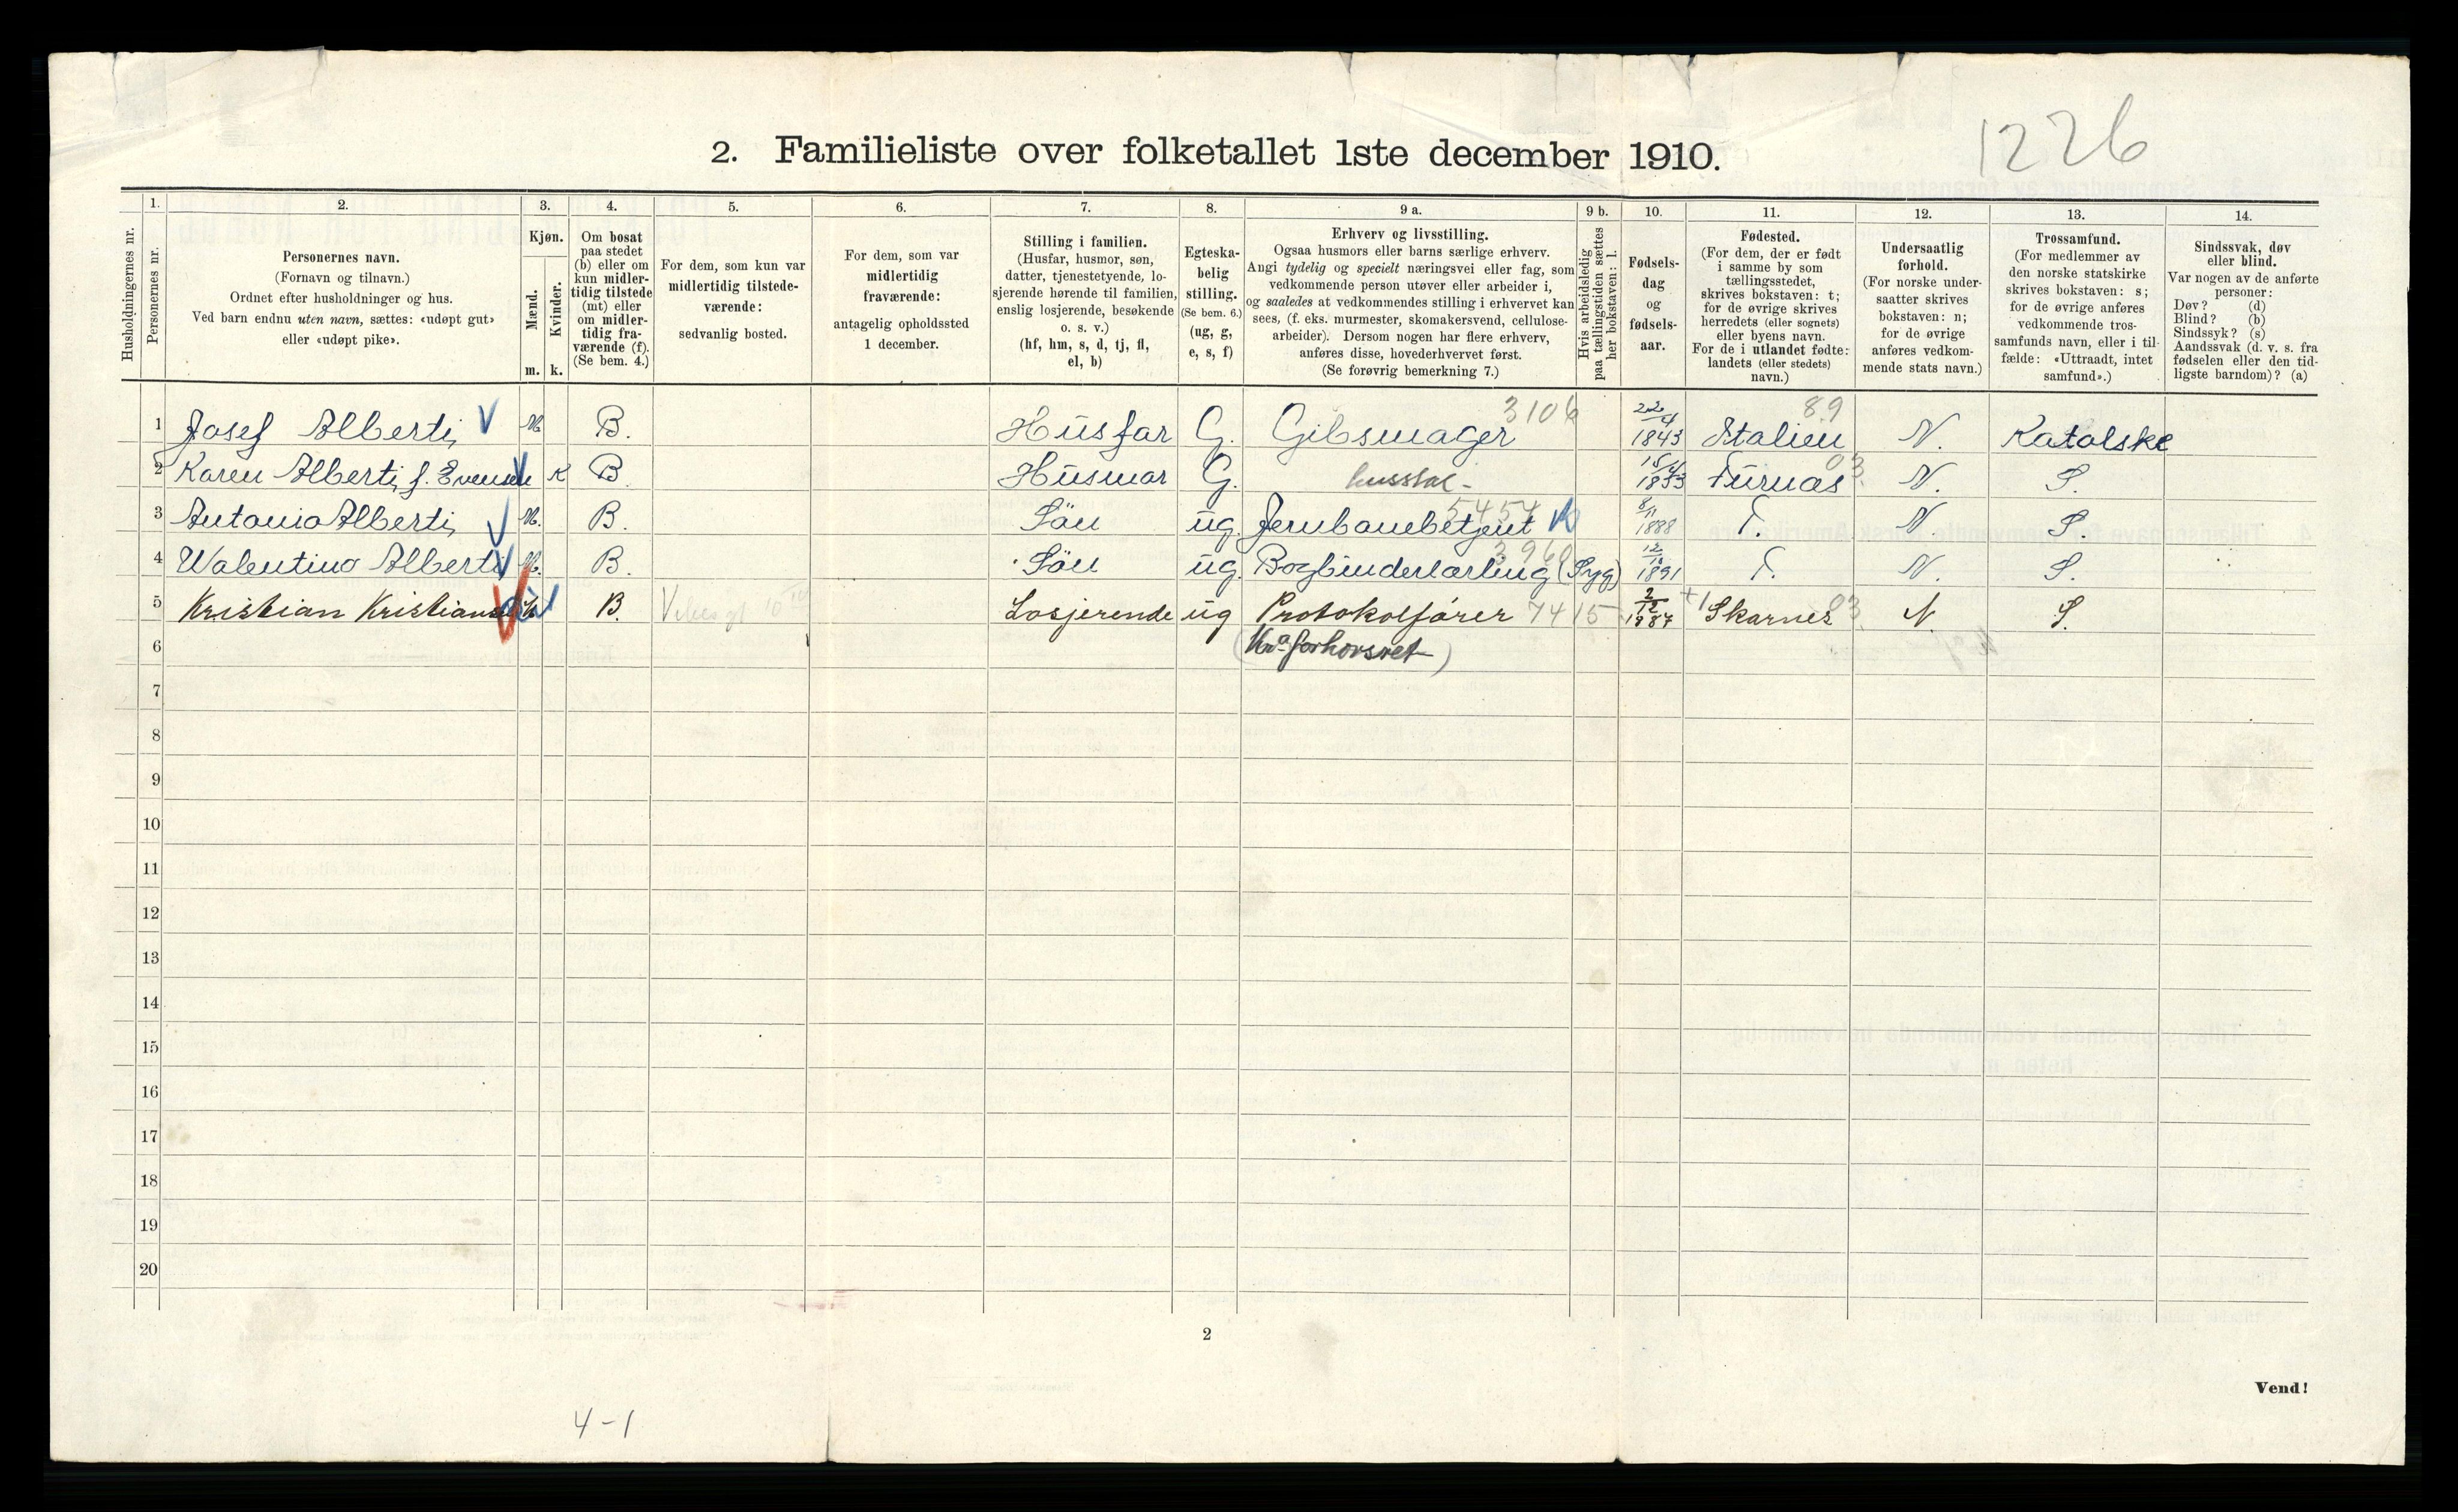 1226
2. Familieliste over folketallet 1ste december 1910.
Husholdningernes nr.
1.
Personernes nr.
2.
Personernes navn.
(Fornavn og tilnavn.)
Ordnet efter husholdninger og hus.
Ved barn endnu uten navn, sættes: «udøpt gut»
eller «udøpt pike».
3.
Kjøn.
Mænd.
Kvinder.
m. k.
4.
Om bosat
paa stedet
(b) eller om
kun midler-
tidig tilstede
(mt) eller
om midler-
tidig fra-
værende (f).
(Se bem. 4.)
5.
For dem, som kun var
midlertidig tilstede-
værende:
sedvanlig bosted.
6.
For dem, som var
midlertidig
fraværende:
antagelig opholdssted
1 december.
7.
Stilling i familien.
(Husfar, husmor, søn,
datter, tjenestetyende, lo-
sjerende hørende til familien,
enslig losjerende, besøkende
o. s. v.)
(hf, hm, s, d, tj, fl,
el, b)
8.
Egteska-
belig
stilling.
(Se bem. 6.)
(ug, g,
e, s, f)
9 a.
Erhverv og livsstilling.
Ogsaa husmors eller barns særlige erhverv.
Angi tydelig og specielt næringsvei eller fag, som
vedkommende person utøver eller arbeider i,
og saaledes at vedkommendes stilling i erhvervet kan
sees, (f. eks. murmester, skomakersvend, cellulose-
arbeider). Dersom nogen har flere erhverv,
anføres disse, hovederhvervet først.
(Se forøvrig bemerkning 7.)
9 b.
Hvis arbeidsledig
paa tællingstiden sættes
her bokstaven: l.
10.
Fødsels-
dag
og
fødsels-
aar.
11.
Fødested.
(For dem, der er født
i samme by som
tællingsstedet,
skrives bokstaven: t;
for de øvrige skrives
herredets (eller sognets)
eller byens navn.
For de i utlandet fødte:
landets (eller stedets)
navn.)
12.
Undersaatlig
forhold.
(For norske under-
saatter skrives
bokstaven: n;
for de øvrige
anføres vedkom-
mende stats navn.)
13.
Trossamfund.
(For medlemmer av
den norske statskirke
skrives bokstaven: s;
for de øvrige anføres
vedkommende tros-
samfunds navn, eller i til-
fælde: «Uttraadt, intet
samfund».)
14.
Sindssvak, døv
eller blind.
Var nogen av de anførte
personer:
Døv? (d)
Blind? (b)
Sindssyk? (s)
Aandssvak (d. v. s. fra
fødselen eller den tid-
ligste barndom)? (a)
3106 89
1 Josef Alberti M. B. Husfar G. Gibsmager 22/4 1843 Italien N. Katolske
03
2 Karen Alberti f. Evensen K B. Husmor G. husstel - Furnæs N. S.
5454
3 Antonio Alberti M. B. Sön ug. Jernbanebetjent 8/11 1888 T. N. S.
3960
4 Walentino Alberti M. B. Sön ug. Bogbinderlærling (Syg) 1891 T. N. S.
5 Kristian Kristiansen B. Losjerende ug Protokolfører 7415 2/12 1887 Skarnes 03 N. S.
6 (Kra. forhorsret)
7
8
9
10
11
12
13
14
15
16
17
18
19
20
2
Vend!
4-1